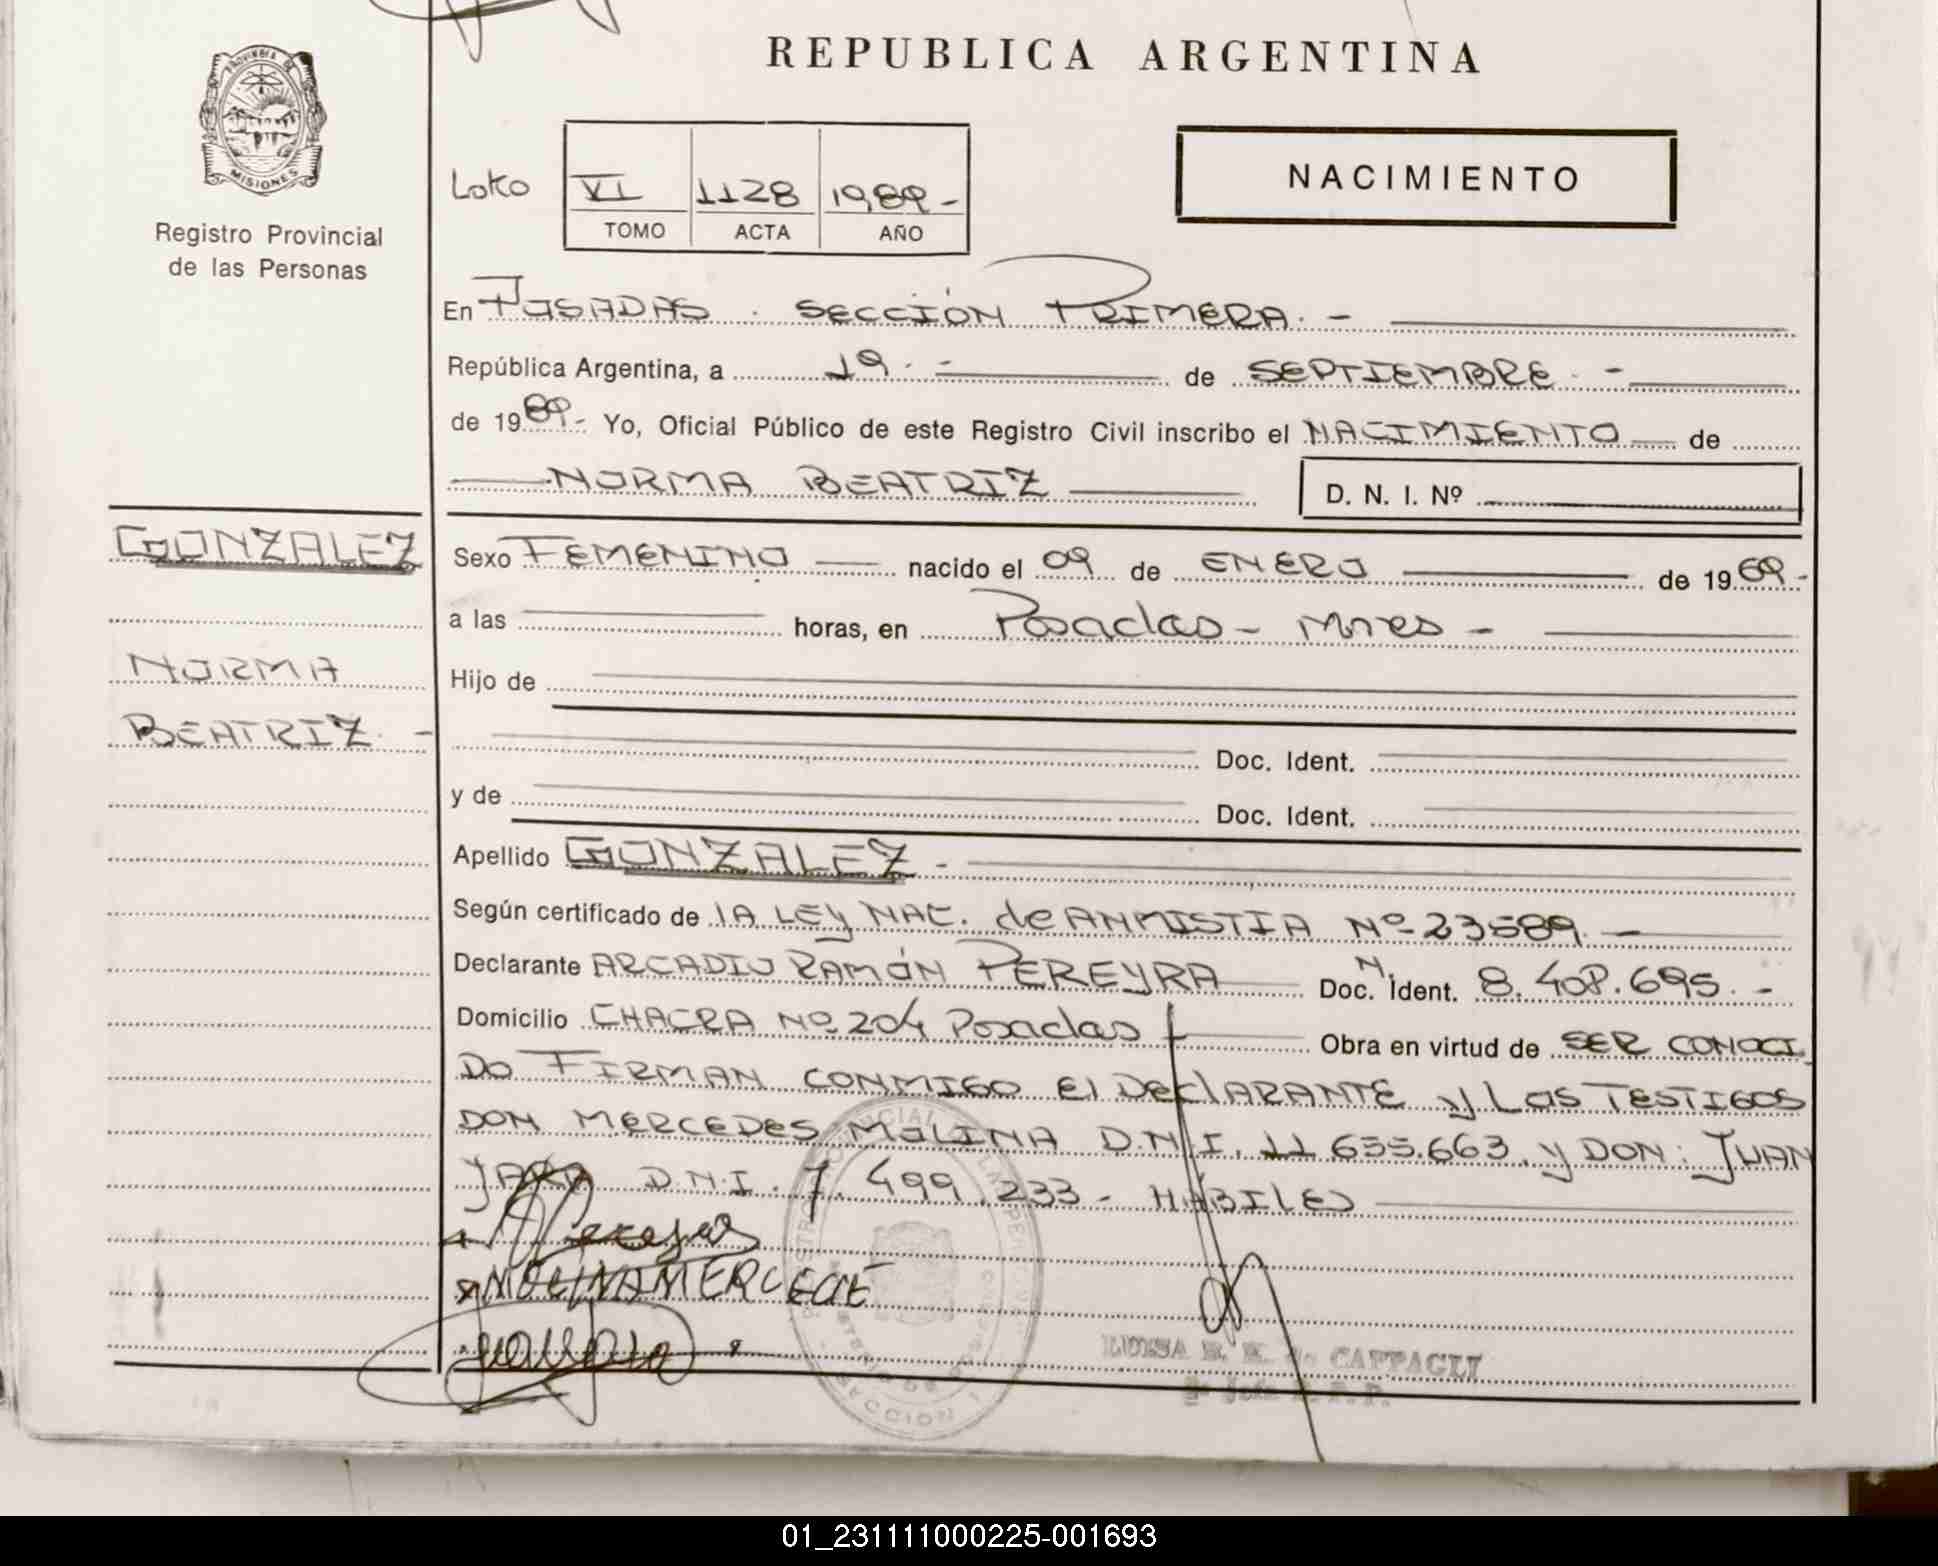 REPUBLICA ARGENTINA
PROVINCIA DE
MISIONES
Registro Provincial
de las Personas
VI 1128 1989 -
TOMO ACTA AÑO
NACIMIENTO
En POSADAS . SECCIÓN PRIMERA. -
República Argentina, a 19. - de SEPTIEMBRE. -
de 1989.- Yo, Oficial Público de este Registro Civil inscribo el NACIMIENTO de
NORMA BEATRIZ
D. N. I. Nº
GONZALEZ
NORMA
BEATRIZ. -
Sexo FEMENINO nacido el 09 de ENERO de 1969.-
a las horas, en Posadas - Mnes -
Hijo de
Doc. Ident.
y de Doc. Ident.
Apellido GONZALEZ -
Según certificado de LA LEY NAC. de AMNISTIA Nº 23589. -
Declarante ARCADIO RAMÓN PEREYRA Doc. M. Ident. 8.408.695. -
Domicilio CHACRA Nº 204 Posadas Obra en virtud de SER CONOCI
DO FIRMAN CONMIGO El DEclARANTE y Los TESTIGOS
DON MERCEDES MOLINA D.N.I. 11 635.663. y DON: JUAN
JARA D.N.I. 7.499.233 - HABILES
MOLINA MERCEDE
LUISA E. K. de CAPPAGLI
SECCION 1
01_231111000225-001693